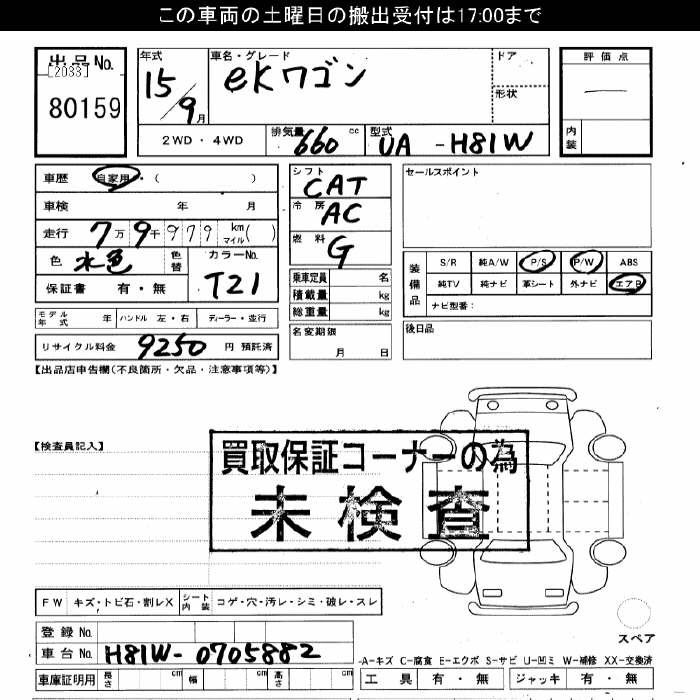 この車両の土曜日の搬出受付は17:00まで
出品No. [2033] 80159
年式 15/9月
車名・グレード eKワゴン
ドア
形状
評価点 —
内装
2WD・4WD 排気量 660 cc 型式 UA -H81W
車歴 自家用・( )
車検 年 月
走行 7万9千979 km マイル( )
色 水色 色替 カラーNo. T21
保証書 有・無
シフト CAT
冷房 AC
燃料 G
乗車定員 名
積載量 kg
総重量 kg
セールスポイント
装備品 S/R 純A/W P/S P/W ABS
純TV 純ナビ 革シート 外ナビ エアB
ナビ型番:
モデル年式 年 ハンドル 左・右 ディーラー・並行
名変期限 月 日
後日品
リサイクル料金 9250 円 預託済
【出品店申告欄(不良箇所・欠品・注意事項等)】
【検査員記入】
買取保証コーナーの為
未検査
FW キズ・トビ石・割レX シート内装 コゲ・穴・汚レ・シミ・破レ・スレ
スペア
登録No.
車台No. H81W-0705882
-A-キズ C-腐食 E-エクボ S-サビ U-凹ミ W-補修 XX-交換済
車庫証明用 長さ cm 幅 cm 高さ cm
工具 有・無 ジャッキ 有・無